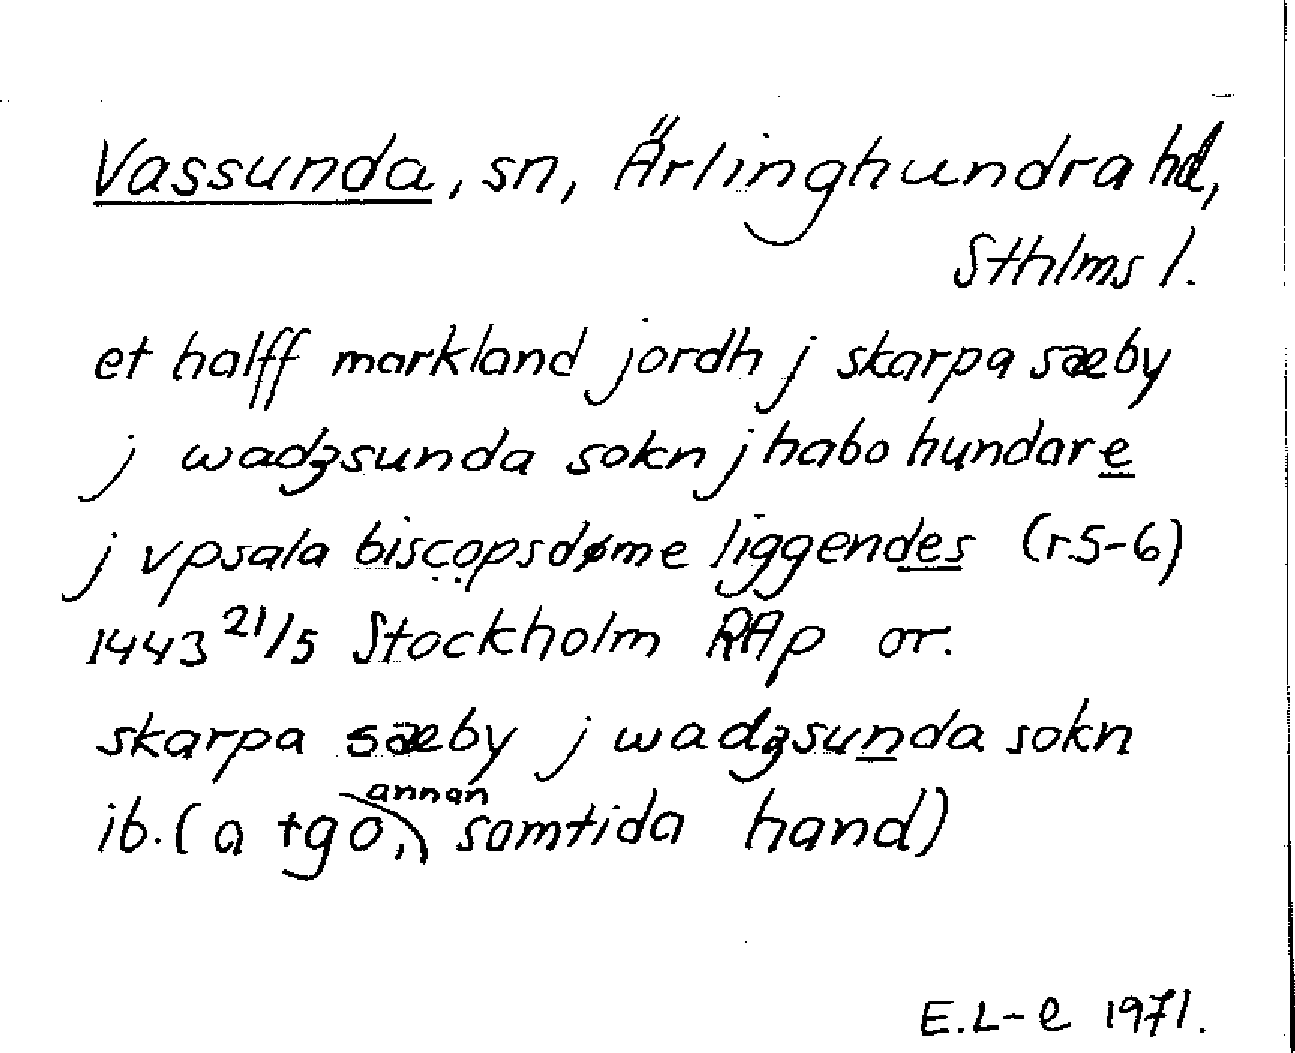 Vassunda, sn, Ärlinghundra hd,
Sthlms l.
et halff markland jordh j skarpa sæby
j wadzsunda sokn j habo hundare
j vpsala biscopsdøme liggendes (r.5-6)
1443 21/5 Stockholm RAp or.
skarpa sæby j wadzsunda sokn
ib. (a tgo, annan samtida hand)
E.L-e 1971.